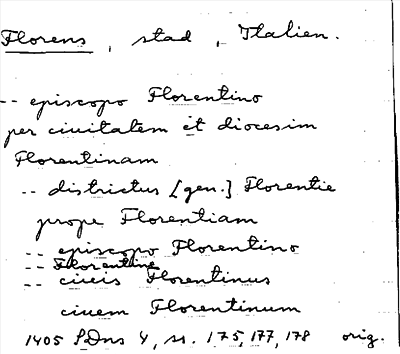 Florens, stad, Italien.
-- episcopo Florentino
per ciuitatem et diocesim
Florentinam
-- districtus [gen.] Florentie
prope Florentiam
-- episcopo Florentino
-- Florentine
-- ciuis Florentinus
ciuem Florentinum
1405 SDns 4, 175, 177, 178 orig.